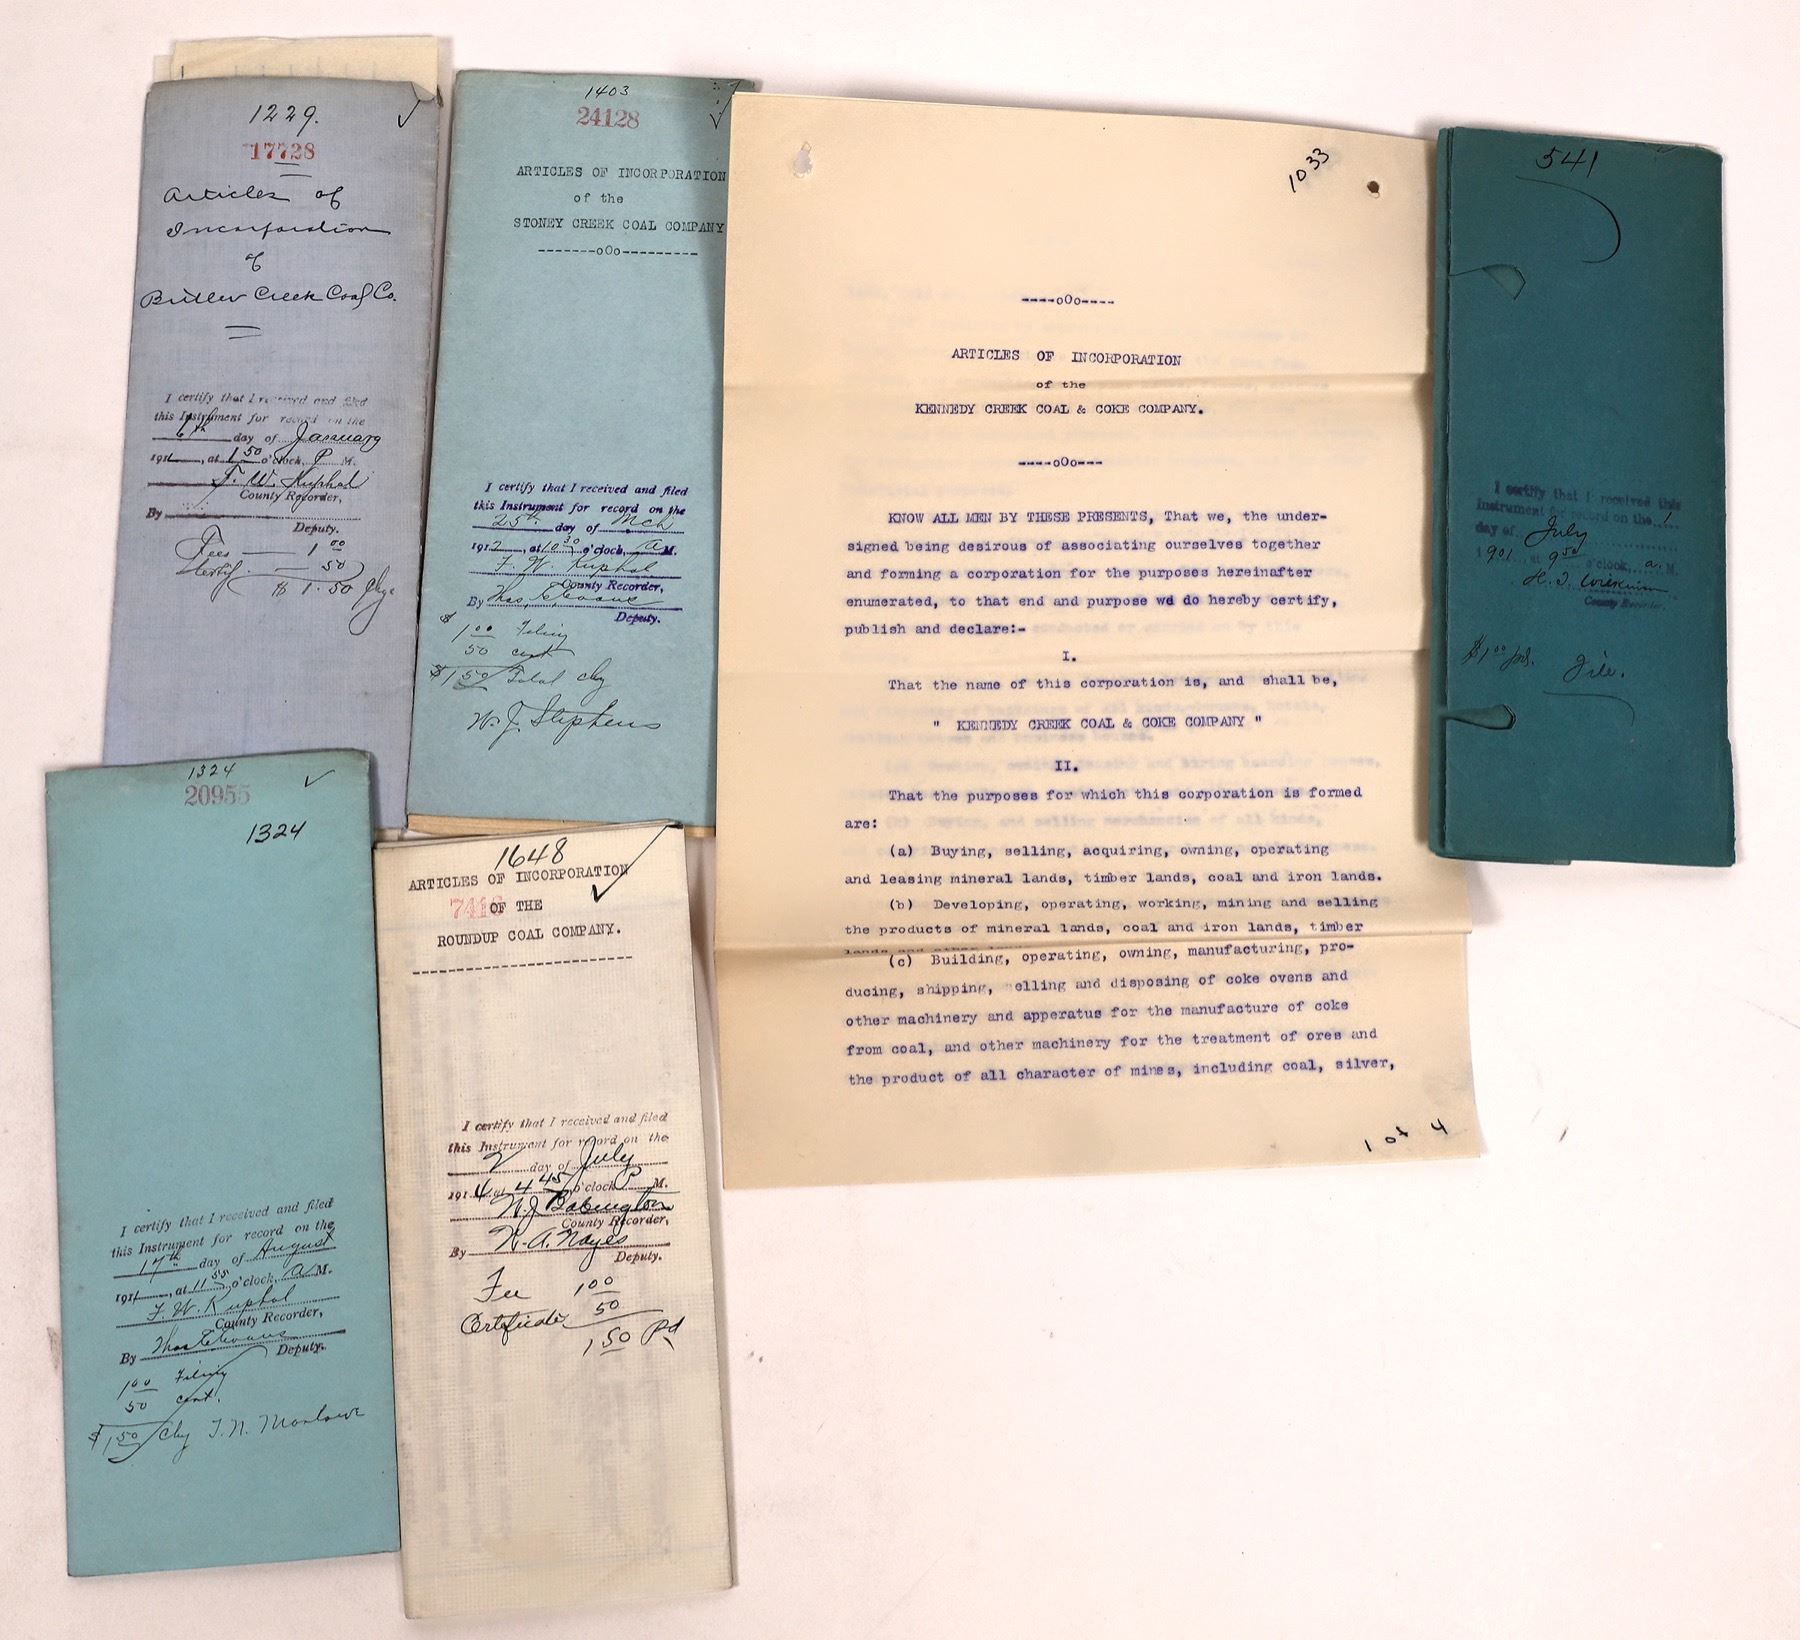 1229.
17728
Articles of
Incorporation
of
Butler Creek Coal Co.
I certify that I received and filed
this Instrument for record on the
6th day of January
1911, at 1 50 o'clock, P M.
F. W. Kuphal
County Recorder,
By
Deputy.
Fees — 1 00
Certif. — 50
$ 1.50 Chg.
1403
24128
ARTICLES OF INCORPORATION
of the
STONEY CREEK COAL COMPANY
-------oOo---------
I certify that I received and filed
this Instrument for record on the
25th day of Mch
1912, at 10 30 o'clock, a M.
F. W. Kuphal
County Recorder,
By Thos. E. Evans
Deputy.
$
1 00 Filing
50 cert
$1 50 Total chg
W. J. Stephens
1033
----oOo----
ARTICLES OF INCORPORATION
of the
KENNEDY CREEK COAL & COKE COMPANY.
----oOo---
KNOW ALL MEN BY THESE PRESENTS, That we, the under-
signed being desirous of associating ourselves together
and forming a corporation for the purposes hereinafter
enumerated, to that end and purpose we do hereby certify,
publish and declare:-
I.
That the name of this corporation is, and shall be,
" KENNEDY CREEK COAL & COKE COMPANY "
II.
That the purposes for which this corporation is formed
are:
(a) Buying, selling, acquiring, owning, operating
and leasing mineral lands, timber lands, coal and iron lands.
(b) Developing, operating, working, mining and selling
the products of mineral lands, coal and iron lands, timber
lands and other
(c) Building, operating, owning, manufacturing, pro-
ducing, shipping, elling and disposing of coke ovens and
other machinery and apperatus for the manufacture of coke
from coal, and other machinery for the treatment of ores and
the product of all character of mines, including coal, silver,
1 of 4
541
I certify that I received this
Instrument for record on the 1
day of July
1901 at 9 50 o'clock, a. M.
County Recorder.
$1 00 pd. File.
1324
20955
1324
I certify that I received and filed
this Instrument for record on the
17th day of August
1911, at 11 55 o'clock, a M.
F. W. Kuphal
County Recorder,
By Thos E Evans
Deputy.
1 00 Filing
50 cert.
$1 50 Chg T. N. Marlowe
1648
ARTICLES OF INCORPORATION
7416 OF THE
ROUNDUP COAL COMPANY.
I certify that I received and filed
this Instrument for record on the
2 day of July
1914 at 4 45 o'clock P M.
W. J. Babington
County Recorder,
By W. A. Noyes
Deputy.
Fee 1 00
Certificate 50
1 50 Pd